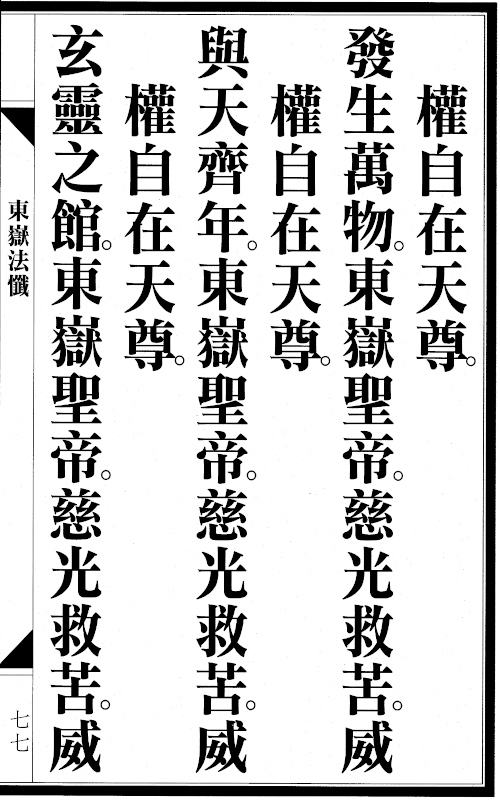 權自在天尊。
發生萬物。東嶽聖帝。慈光救苦。威
權自在天尊。
與天齊年。東嶽聖帝。慈光救苦。威
權自在天尊。
玄靈之館。東嶽聖帝。慈光救苦。威
東嶽法懺
七七